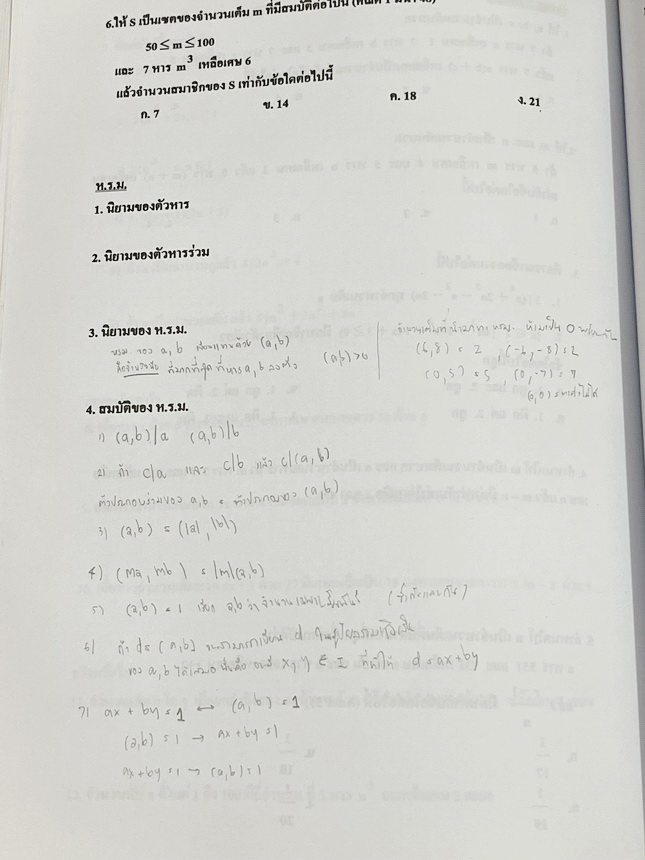 6.ให้ S เป็นเซตของจำนวนเต็ม m ที่มีสมบัติต่อไปนี้
50 ≤ m ≤ 100
และ 7 หาร m³ เหลือเศษ 6
แล้วจำนวนสมาชิกของ S เท่ากับข้อใดต่อไปนี้
ก. 7 ข. 14 ค. 18 ง. 21
ห.ร.ม.
1. นิยามของตัวหาร
2. นิยามของตัวหารร่วม
3. นิยามของ ห.ร.ม.
หรม ของ a, b เขียนแทนด้วย (a,b)
ที่มากที่สุด ที่หาร a, b ลงตัว (a,b) > 0
ห้ามเป็น 0 พร้อมกัน
(6,8) = 2 , (-6,-8) = 2
(0,5) = 5 (0,-7) = 7
(0,0) = หาค่าไม่ได้
4. สมบัติของ ห.ร.ม.
1) (a,b)|a (a,b)|b
2) ถ้า c|a และ c|b แล้ว c|(a,b)
ตัวประกอบร่วมของ a,b = ตัวประกอบของ (a,b)
3) (a,b) = (|a|,|b|)
4) (ma, mb) = |m|(a,b)
5) (a,b) = 1 เรียก a,b ว่าจำนวนเฉพาะสัมพัทธ์
6) ถ้า d = (a,b) จะสามารถเขียน d ในรูปผลรวมเชิงเส้น
ของ a,b ได้เสมอ นั่นคือ จะมี x, y ∈ I ที่ทำให้ d = ax+by
7) ax + by = 1 ↔ (a,b) = 1
(a,b) = 1 → ax + by = 1
ax+by = 1 → (a,b) = 1